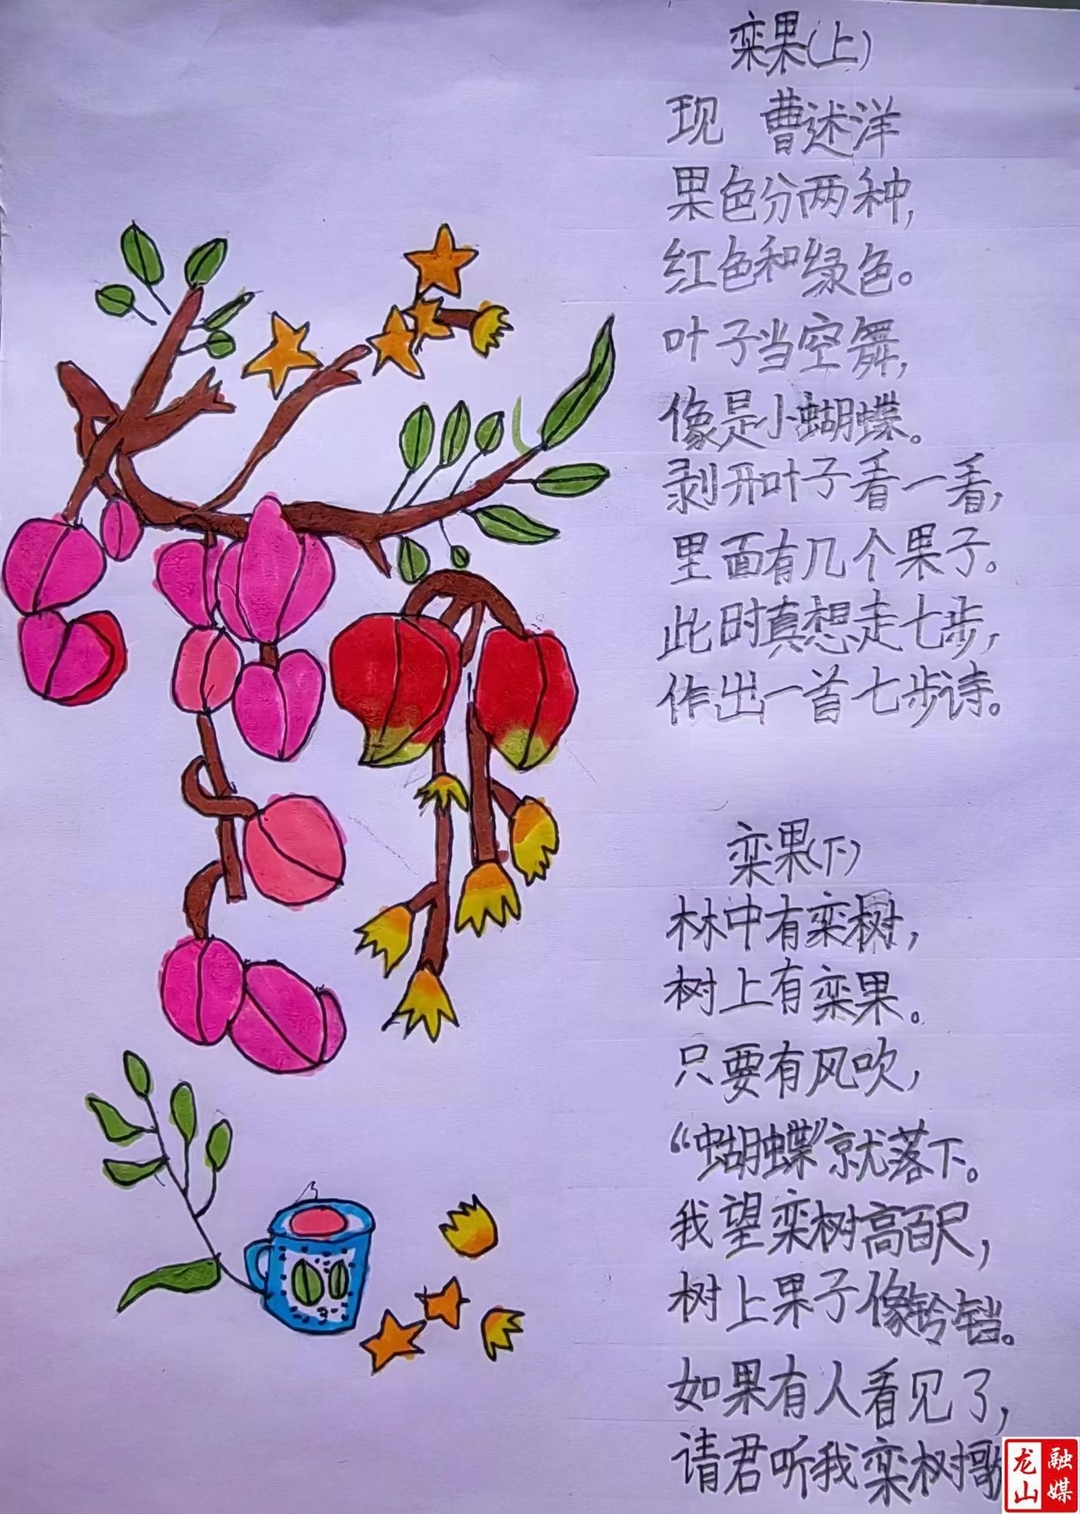 栾果(上)
现 曹述洋
果色分两种,
红色和绿色。
叶子当空舞,
像是小蝴蝶。
剥开叶子看一看,
里面有几个果子。
此时真想走七步,
作出一首七步诗。
栾果(下)
林中有栾树,
树上有栾果。
只要有风吹,
“蝴蝶”就落下。
我望栾树高百尺,
树上果子像铃铛。
如果有人看见了,
请君听我栾树歌
龙山
融媒